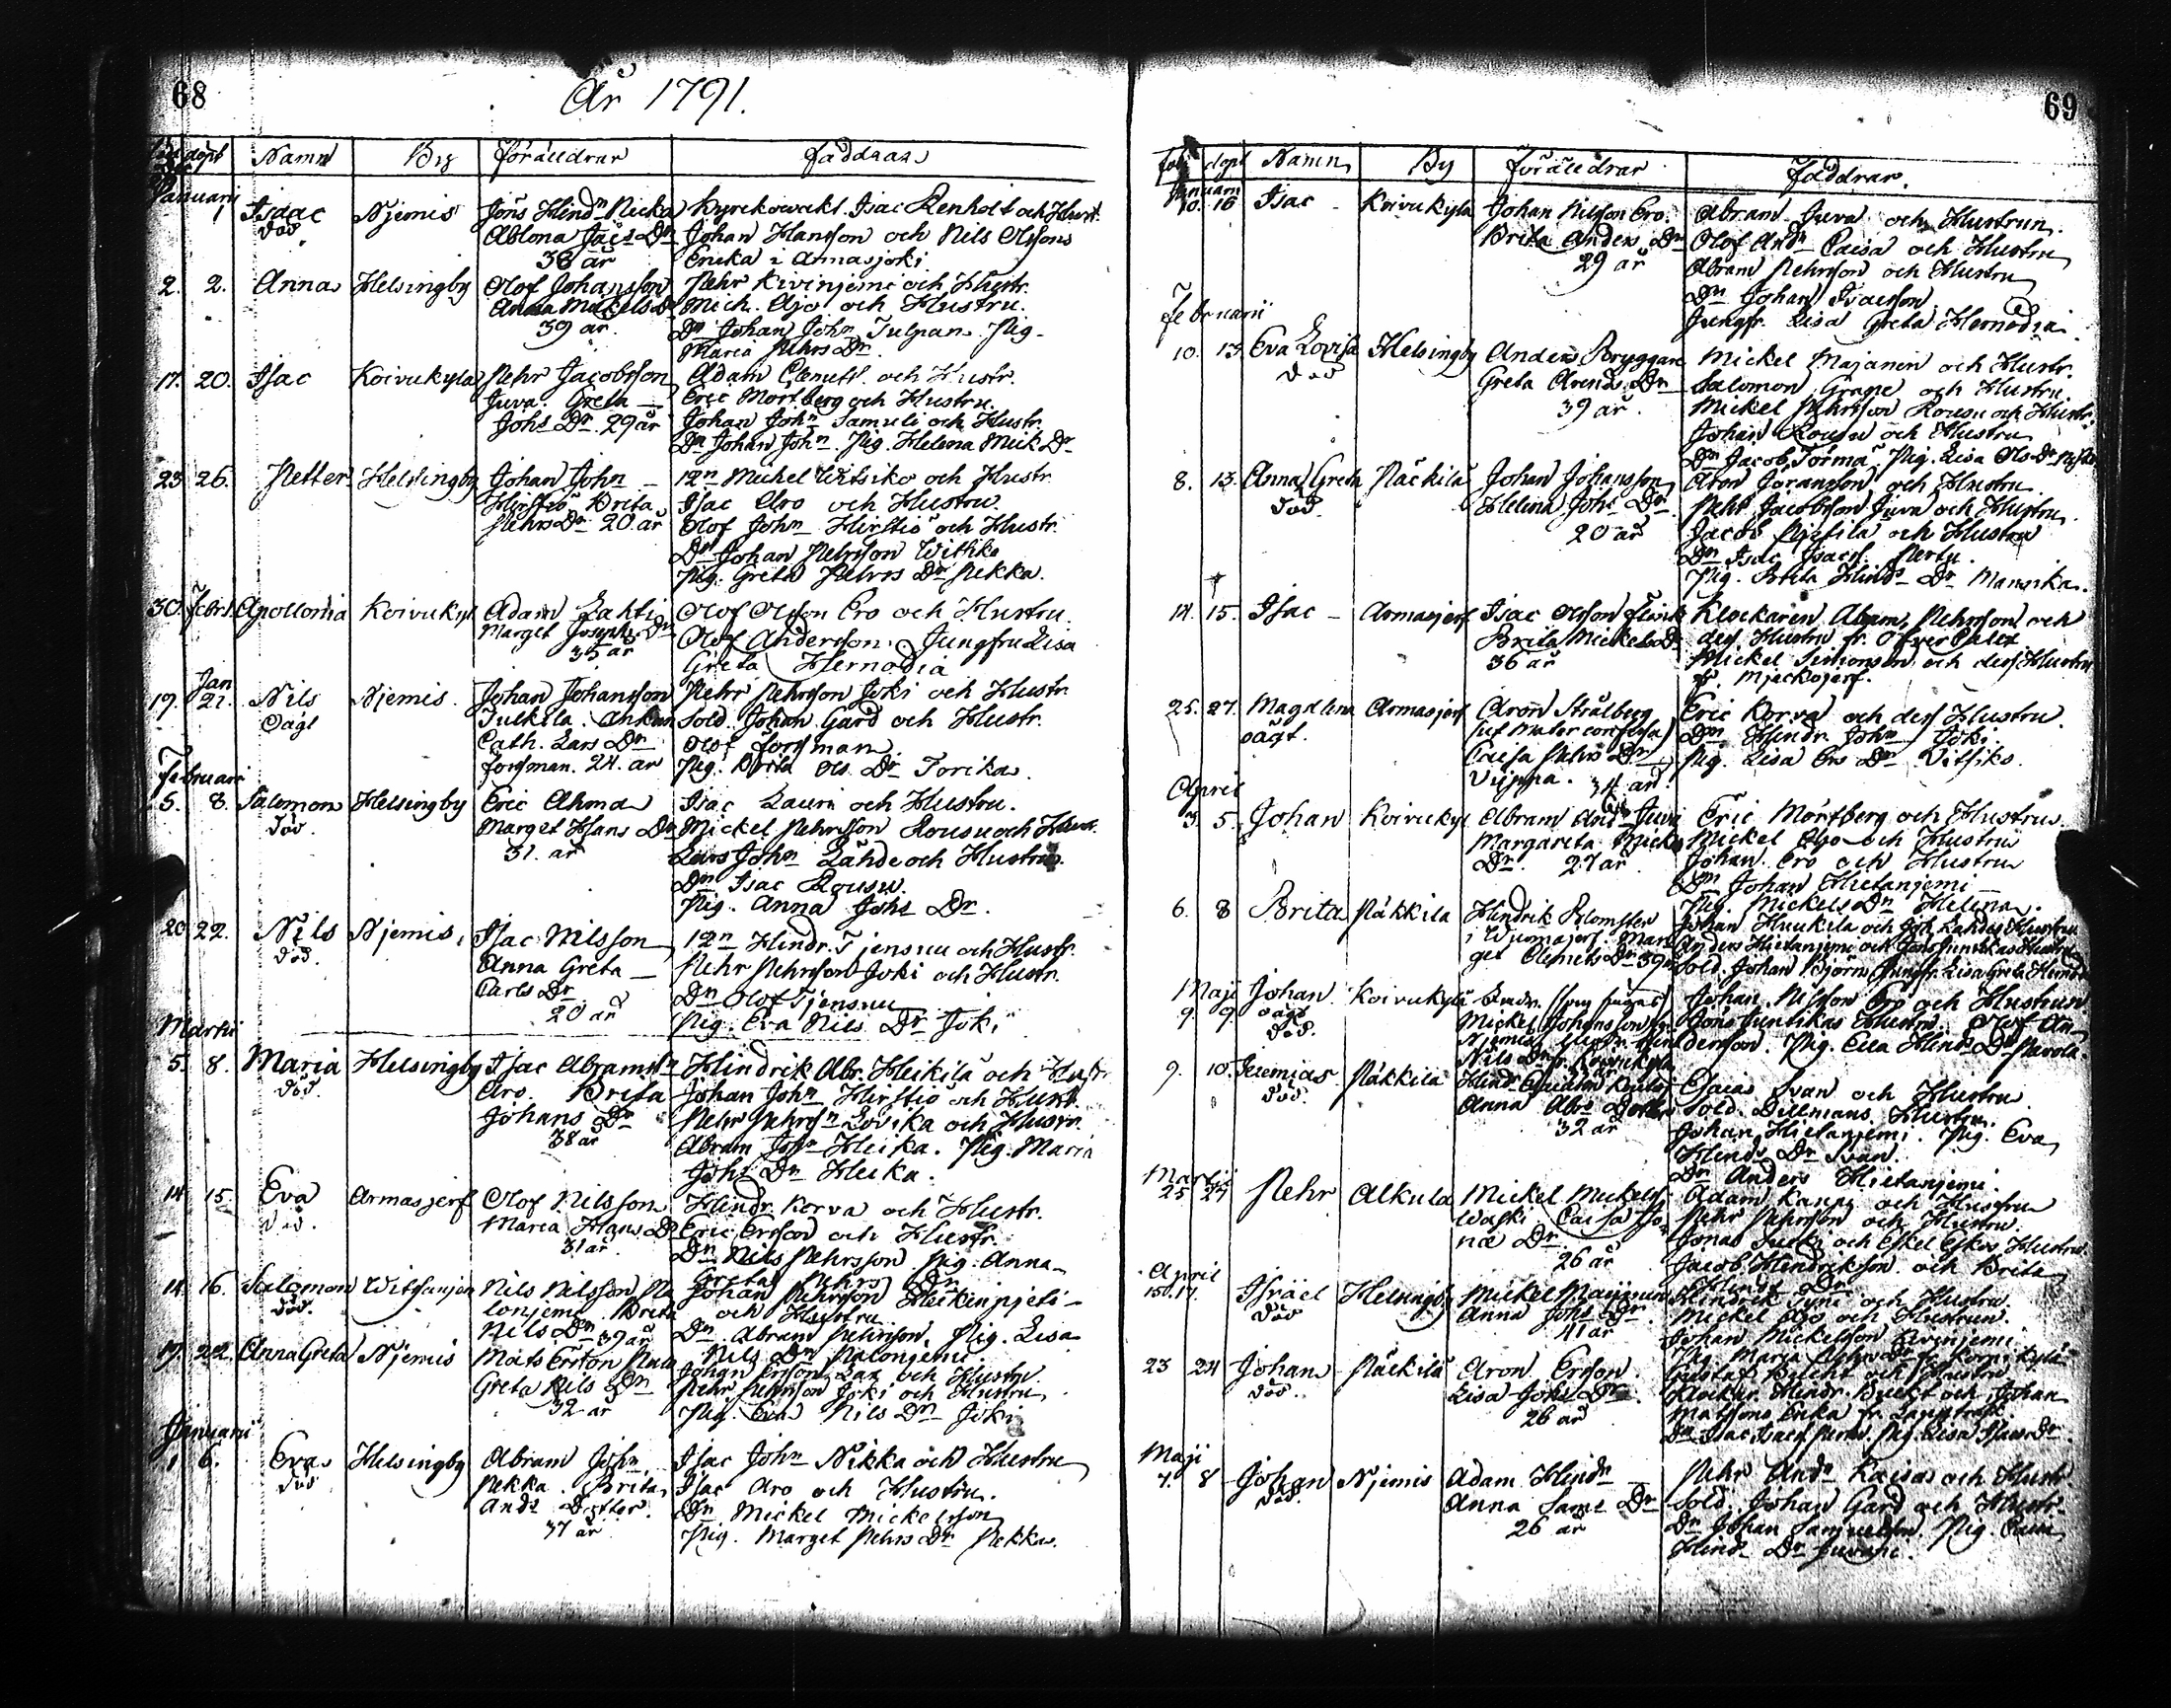 68
År 1791.
född döpt Namn By föräldrar faddrar
Januari
1 Isaac Njemis Jöns Hindn Nicka Kyrckowackt. Isac Renholt och Hustr.
död Ablona Jacs Dr Johan Hansson och Nils Olssons
38 år Ericka i Armasjoki
2. 2. Anna Helsingby Olof Johansson Pehr Kivinjemi och Hustr.
Anna Mickels Dr Mich. Ajo och Hustru.
39 år Dn Johan John Tulpan. Pig.
Maria Pehrs Dr.
17. 20. Isac Koivukyla Pehr Jacobsson Adam Clemets. och Hustr.
Juva. Greta Eric Mortberg och Hustru.
Johs Dr. 29 år Johan John Samuli och Hustr.
Dn Johan John. Pig. Helena Mick Dr
23 26. Petter Helsingby Johan John 12n Mickel Witsiko och Hustr
Hirstiö Brita Isac Aro och Hustru.
Pehrs Dr 20 år Olof John Hirstiö och Hustr.
Dn Johan Pehrsson Witsiko
Pig. Greta Pehrs Dr Pekka.
30. Febr. 1. Apollonia Koivukyl Adam Lahti Olof Olsson Ero och Hustru.
Marget Josephs Dr Olof Andersson. Jungfru Lisa
35 år Greta Hernodia
Jan
19. 21. Nils Njemis. Johan Johansson Pehr Pehrsson Joki och Hustr
oägt Tulkila. Enkan Sold. Johan Gard och Hustr.
Cath. Lars Dr Olof forssman.
forssman. 24. år Pig. Brita Ols. Dr Torika.
Februari
5. 8. Salomon Helsingby Eric Ahma Isac Lauri och Hustru.
död. Marget Hans Dr Mickel Pehrsson Rousu och Hustr.
31. år Lars John Lähde och Hustru.
Dn Isac Rousu.
Pig. Anna Johs Dr.
20 22. Nils Njemis. Isac Nilsson 12n Hindr. Tjensuu och Hustr.
död. Anna Greta Pehr Pehrsson Joki och Hustr.
Carls Dr Dn Olof Tjensuu
20 år Pig. Eva Nils Dr Joki
Martii
5. 8. Maria Helsingby Isac Abramsn Hindrik Abr. Heikilä och Hustr
död. Aro. Brita Johan John Hirstio och Hustr.
Johans Dr Pehr Pehrssn Lovika och Hustr.
38 år Abram John Heika. Pig. Maria
Johs Dr Heika.
14 15. Eva Armasjerf Olof Nilsson Hindr. Korva och Hustr.
död. Maria Hans Dr Eric Ersson och Hustr.
31 år. Dn Nils Pehrsson Pig. Anna
Greta Pehrs Dr
14. 16. Salomon Witsanjen Nils Nilsson Pa Johan Pehrsson Heikinpjeti
död. lonjemi Brita och Hustru
Nils Dr 39 år Dn Abram Pehrsson. Pig. Lisa
Nils Dr Palonjemi.
19. 22. Anna Greta Njemis Mats Ersson Johan Ersson Lax och Hustru.
Greta Nils Dr Pehr Pehrsson Joki och Hustru
32 år Pig. Eva Nils Dr Joki
Januari
1 6. Eva Helsingby Abram John Isac John Nikka och Hustru
död Pekka. Brita Isac Aro och Hustru.
Ands Dotter. Dn Mickel Mickelsson
37 år Pig. Marget Pehrs Dr Pekka.
69
född döpt Namn By föräldrar Faddrar.
Januari
10. 16 Isac Koivukyla Johan Nilsson Ero. Abram Juva och Hustrun.
Brita Anders Dr Olof Andn Caisa och Hustru
29 år Abram Pehrsson och Hustru
Dn Johan Ivarsson
Jungfr. Lisa Greta Hernodia
Februarii
10. 13. Eva Lovisa Helsingby Anders Bryggare Mickel Majanen och Hustr.
död Greta Arends Dr Salomon Grape och Hustru.
39 år. Mickel Pehrsson Rousu och Hustr.
Johan Rousu och Hustru
Dn Jacob Törmä Pig. Lisa Ols Dr
8. 13. Anna Greta Päckilä Johan Johansson Aron Joransson och Hustru
död. Helena Johs Dr Pehr Jacobsson Juva och Hustru.
20 år Jacob och Hustru
Dn Isac Isacs. Pertu.
Pig. Brita Hinds Dr Mannika.
14. 15. Isac Armasjerf Isac Olsson Flink Klockaren Abram Pehrsson och
Brita Mickels Dr dess Hustru fr. Öfver
36 år Mickel Simonsson och dess Hustru
fr. Mjeckojerf.
25. 27. Magdalena Armasjerf Aron Strålberg Eric Korva och dess Hustru.
oägt. (ut Mater confessa) Dn Hindr. John Joki
Caisa Pehrs Dr Pig. Lisa Ers Dr Vitsiko.
Vippa. 34 år.
April
3. 5. Johan Koivukyl Abram Andn Juva Eric Mortberg och Hustru
Margareta Micks Mickel Ajo och Hustru
Dr. 27 år Johan Ero och Hustru
Dn Johan Hietanjemi
6. 8 Brita Päkkila Hindrik Blomster Pig. Mickels Dr Helena.
Johan Huukila och Joh. Lahdis Hustru
get Clemets Dr 39 år Anders Hietanjemi och Jöns Juntikas Hustru
Sold. Johan Björn Jungfr. Lisa Greta Hernodia
Maji
9. 9. Johan Koivukylä Johan Nilsson Ero och Hustrun
oägt Mickel Johansson Jöns Juntikas Hustru. Olof An-
död. Njemis dersson. Pig. Eva Hinds Dr Parola
Nils Dr fr. Koivukyla
9. 10. Jeremias Päkkila Hindr. Esaias Svan och Hustru
död. Anna Abrs Dotter Sold. Dillmans Hustru.
32 år Johan Hietanjemi. Pig. Eva
Hinds Dr Svan.
Dn Anders Hietanjemi.
Martii
25 27 Pehr Alkula Mickel Mickels. Adam Kauppi och Hustru
Waski Caisa Jo- Pehr Pehrsson och Hustru.
nae Dr Jonas och Eskel Hustru.
26 år Jacob Hendrikson och Brita
Hinds Dr
April
15. 17. Israel Helsingby Mickel Majanen Hindrik och Hustru
död Anna Johs Dr. Mickel Ajo och Hustrun.
41 år Johan Mickelsson Kivinjemi.
Pig Maria
23 24 Johan Päckilä Aron Ersson Gustaf Bucht och Hustru
död. Lisa Johs Dr Klockar. Hindr. Bucht och Johan
26 år Matssons Enka fr.
Dn Isac
Maji
7. 8 Johan Njemis Adam Hindn Pehr Andn Kaisa och Hustr
död. Anna Sams Dr Sold. Johan Gard och Hustr.
26 år Dn Johan Samuelson. Pig.
Hinds Dr